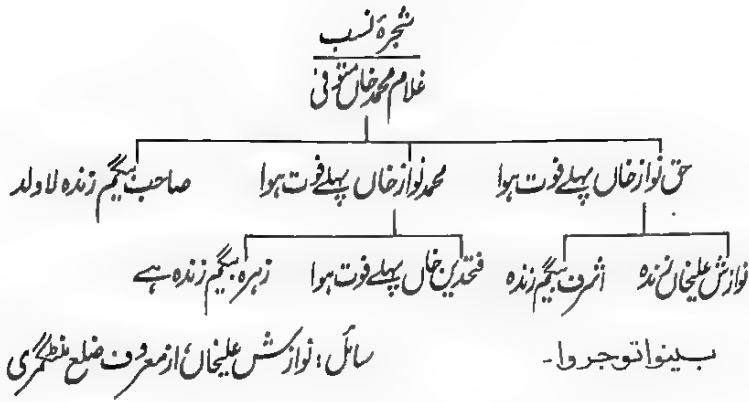 شجرۂ نسب
غلام محمد خاں متوفی
حق نواز خاں پہلے فوت ہوا محمد نواز خاں پہلے فوت ہوا صاحب بیگم زندہ لاولد
نوازش علیخاں زندہ اشرف بیگم زندہ فتحدین خاں پہلے فوت ہوا زہرہ بیگم زندہ ہے
بینوا توجروا۔ سائل: نوازش علیخاں، از معروف ضلع منٹگمری